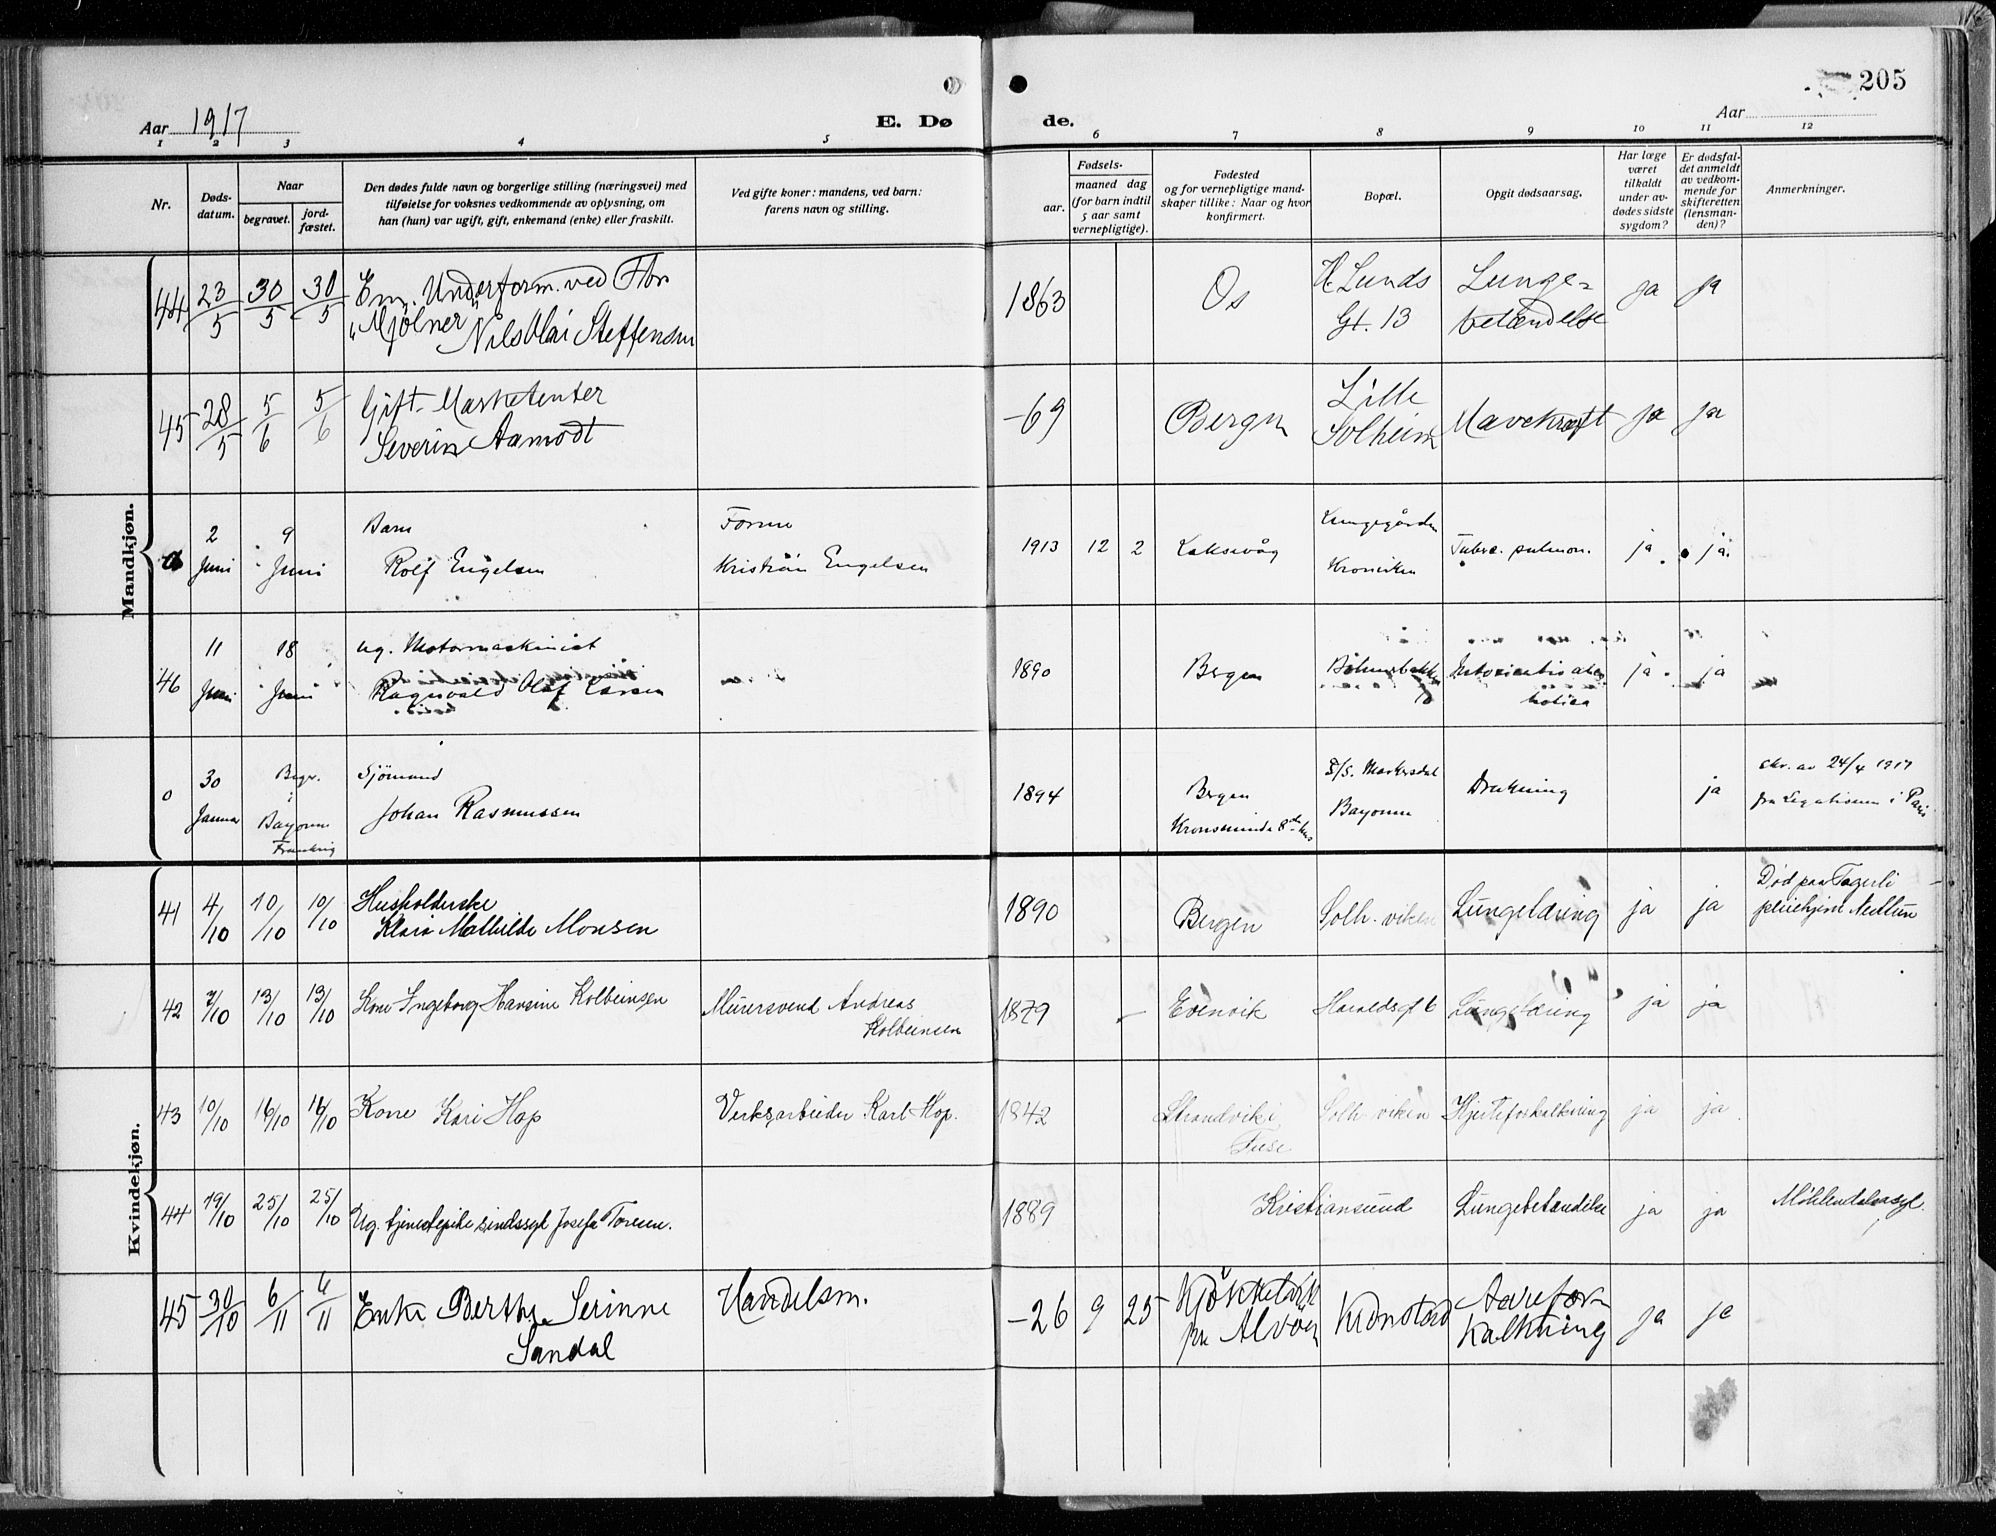 205
Aar 1917
E. Dø
de.
Aar
1 2 3 4 5 6 7 8 9 10 11 12
Nr.
Døds-
datum.
Naar
begravet.
jord-
fæstet.
Den dødes fulde navn og borgerlige stilling (næringsvei) med
tilføielse for voksnes vedkommende av oplysning, om
han (hun) var ugift, gift, enkemand (enke) eller fraskilt.
Ved gifte koner: mandens, ved barn:
farens navn og stilling.
Fødsels-
aar.
maaned dag
(for barn indtil
5 aar samt
vernepligtige).
Fødested
og for vernepligtige mand-
skaper tillike: Naar og hvor
konfirmert.
Bopæl.
Opgit dødsaarsag.
Har læge
været
tilkaldt
under av-
dødes sidste
sygdom?
Er dødsfal-
det anmeldt
av vedkom-
mende for
skifteretten
(lensman-
den)?
Anmerkninger.
Mandkjøn.
44 23/5 30/5 30/5 Em. Underform. ved Fbr.
"Mjølner" Nils Olai Steffensen
1863 Os H. Lunds
Gt. 13
Lunge-
betændelse
ja ja
45 28/5 5/6 5/6 Gift. Marketenter
Severin Aamodt
-69 Bergen Lille
Solheim
Mavekræft ja ja
2
Juni
9
Juni
Barn
Rolf Engelsen
Former
Kristian Engelsen
1913 12 2 Laksevåg Lungegården
Kronviken
Tuberc. pulmon. ja ja.
46 11
Juni
18
Juni
ug. Motormaskinist
Ragnvald Olaf Larsen
1890 Bergen
ja ja
0 30
Januar
Begr.
i
Bayonne
Frankrig
Sjömand
Johan Rasmussen
1894 Bergen
Kronsminde
S/S. Markersdal
Bayonne
Drukning ja skr. av 24/4 1917
fra Legationen i Paris
Kvindekjøn.
41 4/10 10/10 10/10 Husholderske
Klara Mathilde Monsen
1890 Bergen Solh.viken Lungetæring ja ja Død paa Fagerli
pleiehjem Nesttun
42 7/10 13/10 13/10 Kone Ingeborg Hansine Kolbeinsen Murersvend Andreas
Kolbeinsen
1879 - Evenvik Haraldsgt 6 Lungetæring ja ja
43 10/10 16/10 16/10 Kone Kari Hop Verksarbeider Karl Hop. 1842 Strandvik i
Fuse
Solh.viken Hjerteforkalkning ja ja
44 19/10 25/10 25/10 Ug. tjenestepike sindssyk Josefa Toresen. 1889 Kristiansund Lungebetændelse ja ja Møhlendalsasyl.
45 30/10 6/11 6/11 Enke Berthe Serinne
Sandal
Handelsm. -26 9 25 Kjøkkelvik
pr. Alvøen
Kronstad Aarefor-
kalkning
ja ja